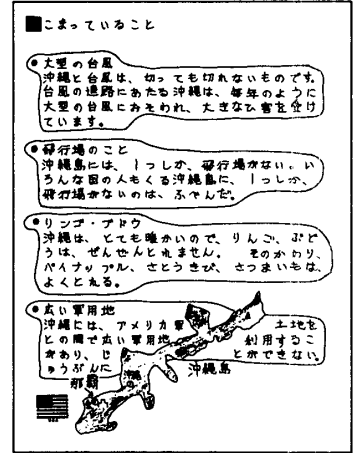 ■こまっていること
●大型の台風
沖縄と台風は、切っても切れないものです。
台風の通路にあたる沖縄は、毎年のように
大型の台風におそわれ、大きなひ害を受け
ています。
●飛行場のこと
沖縄島には、1つしか、飛行場がない。い
ろんな国の人もくる沖縄島に、1つしか、
飛行場がないのは、ふべんだ。
●リンゴ・ブドウ
沖縄は、とても暖かいので、りんご、ぶど
うは、ぜんぜんとれません。そのかわり、
パイナップル、さとうきび、さつまいもは、
よくとれる。
●広い軍用地
沖縄には、アメリカ軍
との間で広い軍用地
があり、じ
ゅうぶんに
土地を
利用するこ
とができない。
那覇
沖縄
沖縄島